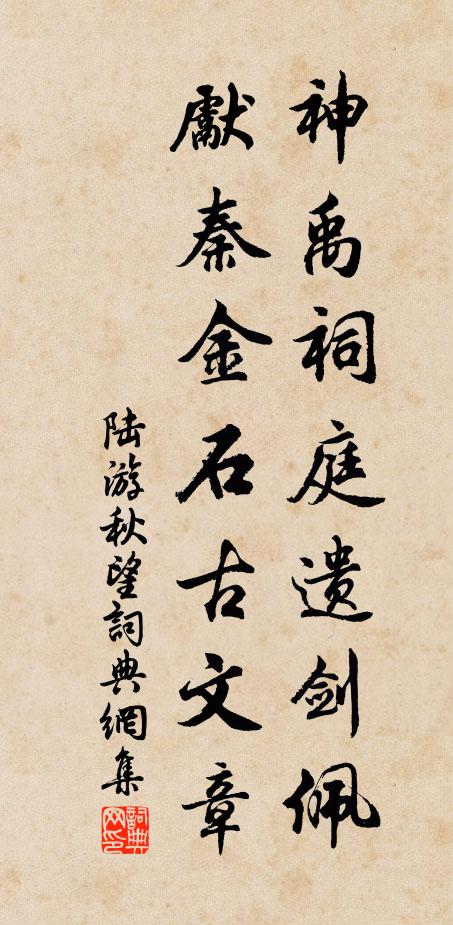 神禹祠庭遗剑佩
獻秦金石古文章
陆游秋望詞典網集
詞典网印